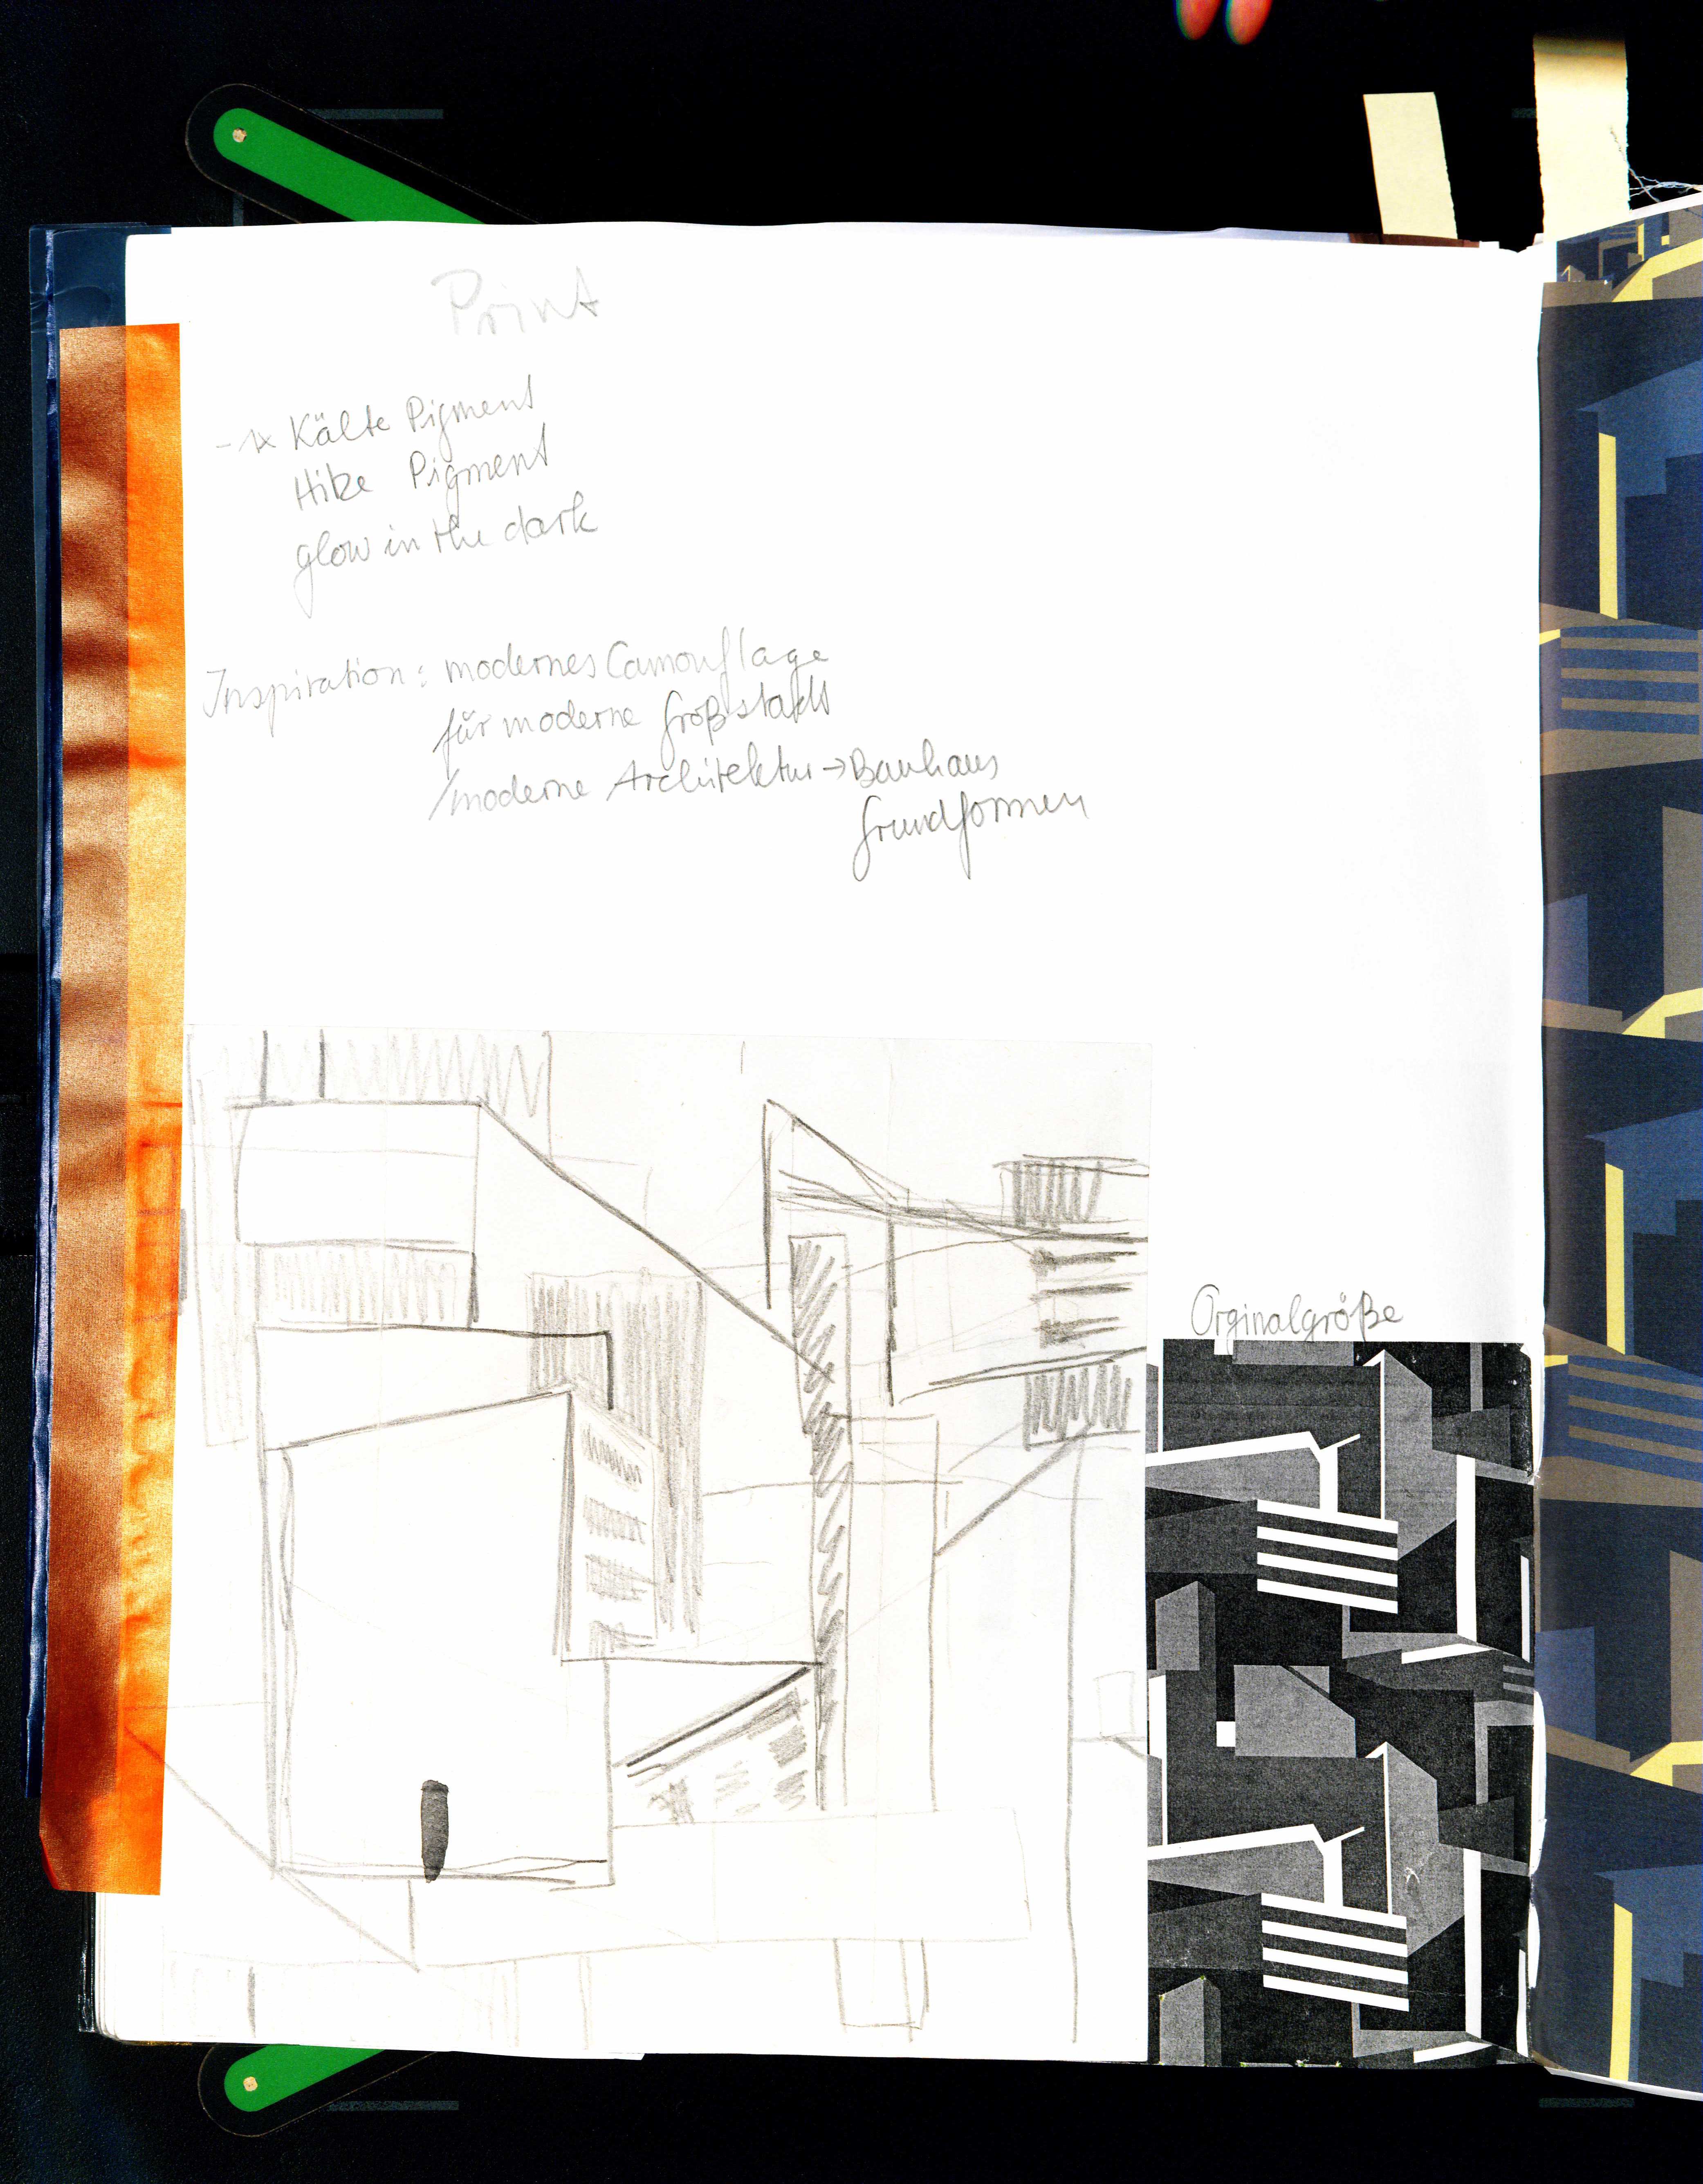 Print
-1x Kälte Pigment
Hitze Pigment
glow in the dark
Inspiration: modernes Camouflage
für moderne Großstadt
/moderne Architektur → Bauhaus
Grundformen
Orginalgröße